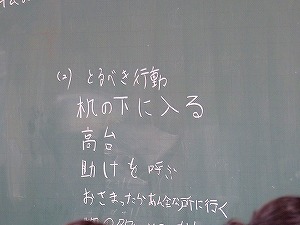 (2) とるべき行動
机の下に入る
高台
助けを呼ぶ
おさまったら安全な所に行く